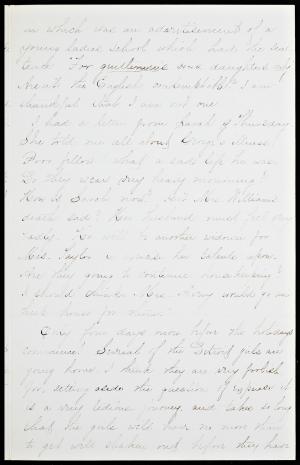 in which was an advertisement of a
young ladies school which had the sen-
tence "For gentlemens' sons & daughters only
Aren't the English contemptible? I am
thankful that I am not one.
I had a letter from Sarah of Thursday
She told me all about illness.
Poor fellow! what a sad life he was.
Do they wear very heavy mourning?
How is Sarah now? Isn't Mrs Williams'
death sad? Her husband must feel very
sadly. He will be another widower for
Mrs. Taylor to her talents upon.
Are they going to continue housekeeping?
I should think Mrs. would go on
keep house for them.
Only few days more before the holidays
commence! Several of the Detroit girls are
going home. I think they are very foolish
for setting aside the question of expense it
is a very tedious journey, and takes so long
that the girls will have no more than
to get well shaken out before they have